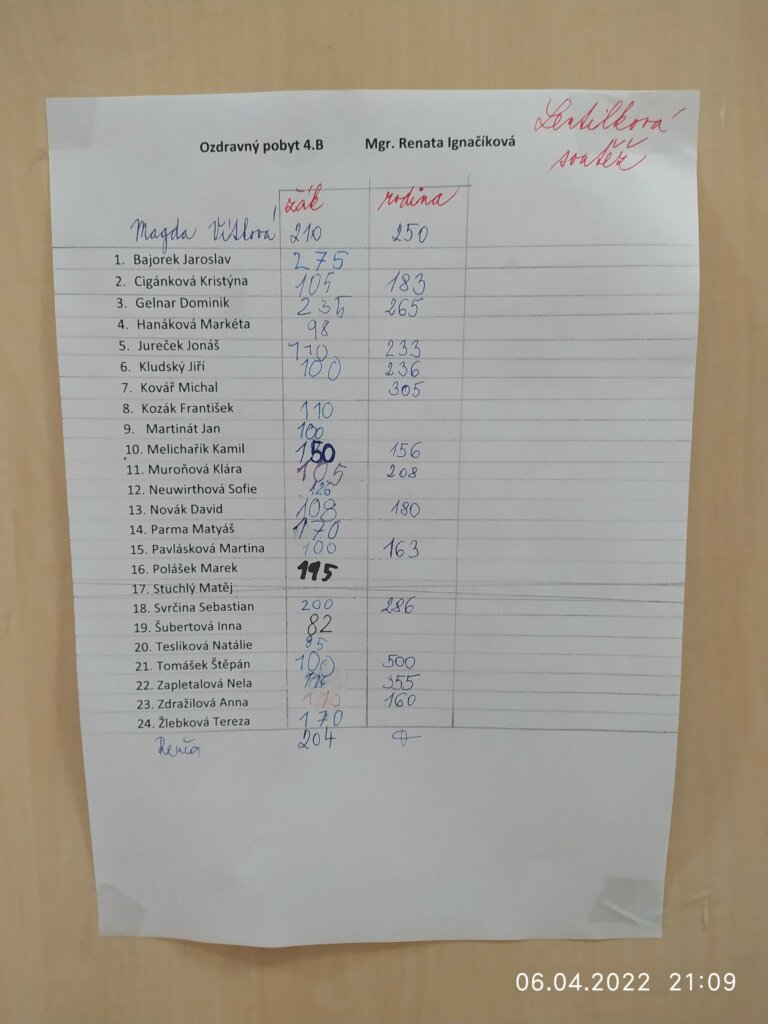 Lentilková
soutěž
Ozdravný pobyt 4.B Mgr. Renata Ignačíková
žák rodina
Magda Vítková 210 250
1. Bajorek Jaroslav 275
2. Cigánková Kristýna 105 183
3. Gelnar Dominik 235 265
4. Hanáková Markéta 98
5. Jureček Jonáš 110 233
6. Kludský Jiří 100 236
7. Kovář Michal 305
8. Kozák František 110
9. Martinát Jan 100
10. Melichařík Kamil 150 156
11. Muroňová Klára 105 208
12. Neuwirthová Sofie 126
13. Novák David 108 180
14. Parma Matyáš 170
15. Pavlásková Martina 100 163
16. Polášek Marek 195
17. Stuchlý Matěj
18. Svrčina Sebastian 200 286
19. Šubertová Inna 82
20. Teslíková Natálie 85
21. Tomášek Štěpán 100 500
22. Zapletalová Nela 355
23. Zdražilová Anna 170 160
24. Žlebková Tereza 170
Renča 204
06.04.2022 21:09